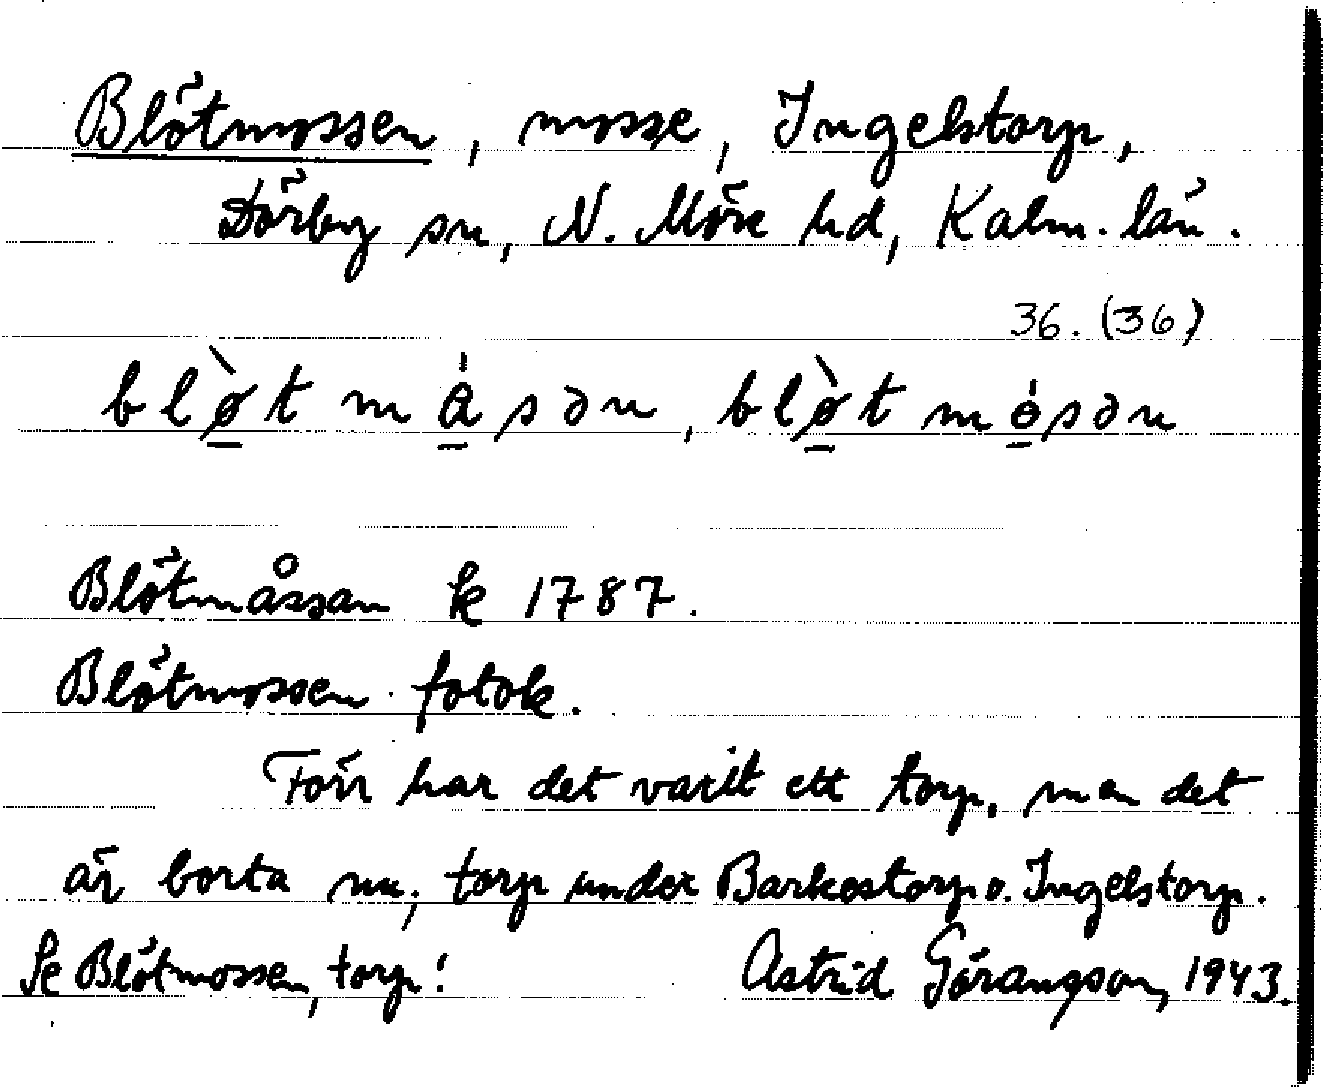 Blötmossen, mosse, Ingelstorp,
Dörby sn, N. Möre hd, Kalm. län.
36. (36)
blø̲̀t mǻ̲sən, blø̲̀t mó̲sən
Blötmåssan k 1787.
Blötmossen fotok.
Förr har det varit ett torp, men det
är borta nu; torp under Barkestorp o. Ingelstorp.
Se Blötmossen, torp! Astrid Göransson, 1943.